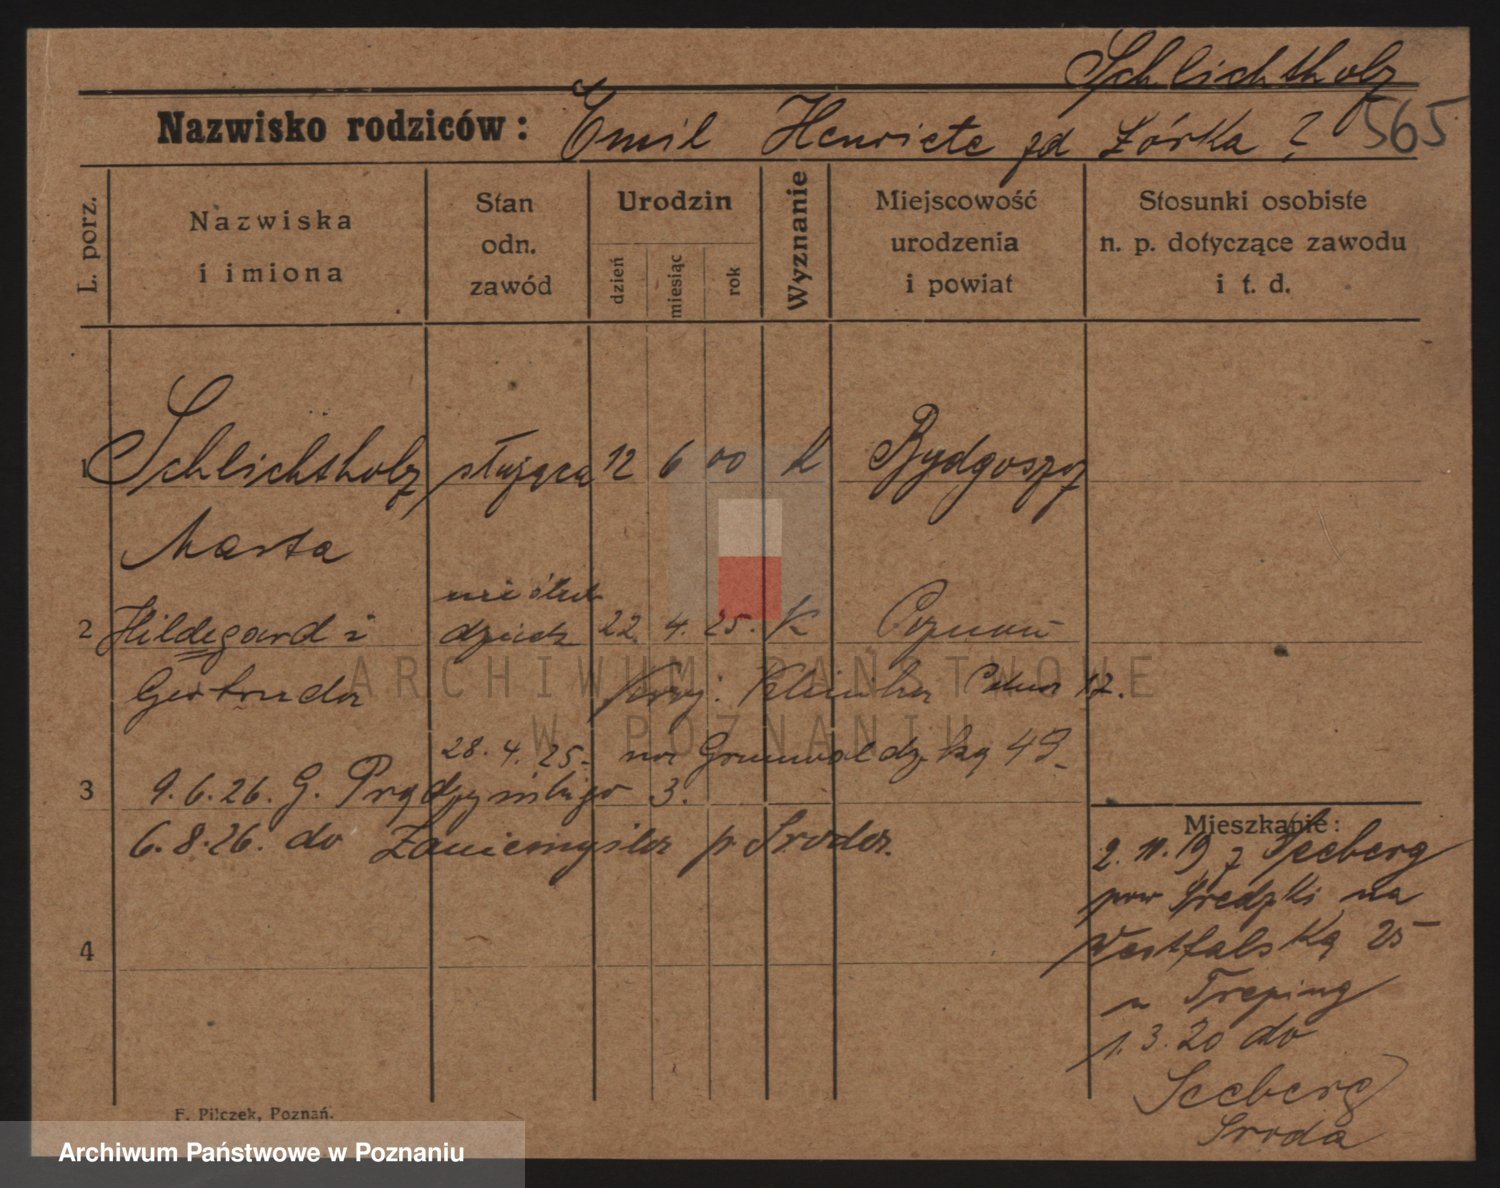 Schlichtholz
Nazwisko rodziców: Emil Henriete zd Żórka ? 565
L. porz.
Nazwiska
i imiona
Stan
odn.
zawód
Urodzin
dzień
miesiąc
rok
Wyznanie
Miejscowość
urodzenia
i powiat
Stosunki osobiste
n. p. dotyczące zawodu
i t. d.
1 Schlichtholz służąca 12 6 00 K Bydgoszcz
Marta
nieślub
2 Hildegard i dziecko 22. 4. 25. K Poznań
Gertruda
17.
28. 4. 25. na Grunwaldzką 49
3 9.6.26. G. Prądzyńskiego 3.
6.8.26. do Zaniemyśla p. Środa.
4
Mieszkanie:
2.11.19 z Seeberg
pow Średzki na
Westfalską 25
u Treping
1.3.20 do
Seeberg
Środa
F. Pilczek, Poznań.
ARCHIWUM PAŃSTWOWE
W POZNANIU
Archiwum Państwowe w Poznaniu